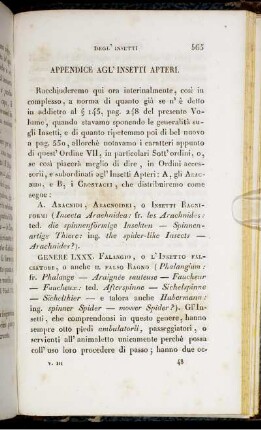 DEGL' INSETTI 565
APPENDICE AGL' INSETTI APTERI.
Racchinderemo qui ora interinalmente, così in
complesso, a norma di quanto già se n'è detto
in addietro al § 145, pag. 248 del presente Vo-
lume, quando stavamo sponendo le generalità su-
gli Insetti, e di quanto ripetemmo poi di bel nuovo
a pag. 550, allorchè notavamo i caratteri appunto
di quest' Ordine VII, in particolari Sott' ordini, o
se così piacerà meglio di dire, in Ordini acces-
sorii, e subordinati agl' Insetti Apteri: A, gli Arac-
nidi, e B, i Crostacei, che distribuiremo come
segue:
A. Aracnidi, Aracnoidei, o Insetti Ragni-
formi (Insecta Arachnoidea: fr. les Arachnoides:
ted. die spinnenförmige Insekten — Spinnen-
artige Thiere: ing. the spider-like Insects —
Arachnoides?).
GENERE LXXX. Falangio, o l'Insetto fal-
ciatore, o anche il falso Ragno (Phalangium:
fr. Phalange — Araignée fauteuse — Faucheur
— Faucheux: ted. Afterspinne — Sichelspinne
— Sichelthier — e talora anche Habermann:
ing. spinner Spider — mower Spider?). Gl'In-
setti, che comprendonsi in questo genere, hanno
sempre otto piedi ambulatorii, passeggiatori, o
servienti all' animaletto unicamente perchè possa
coll' uso loro procedere di passo; hanno due oc-
V. III 48